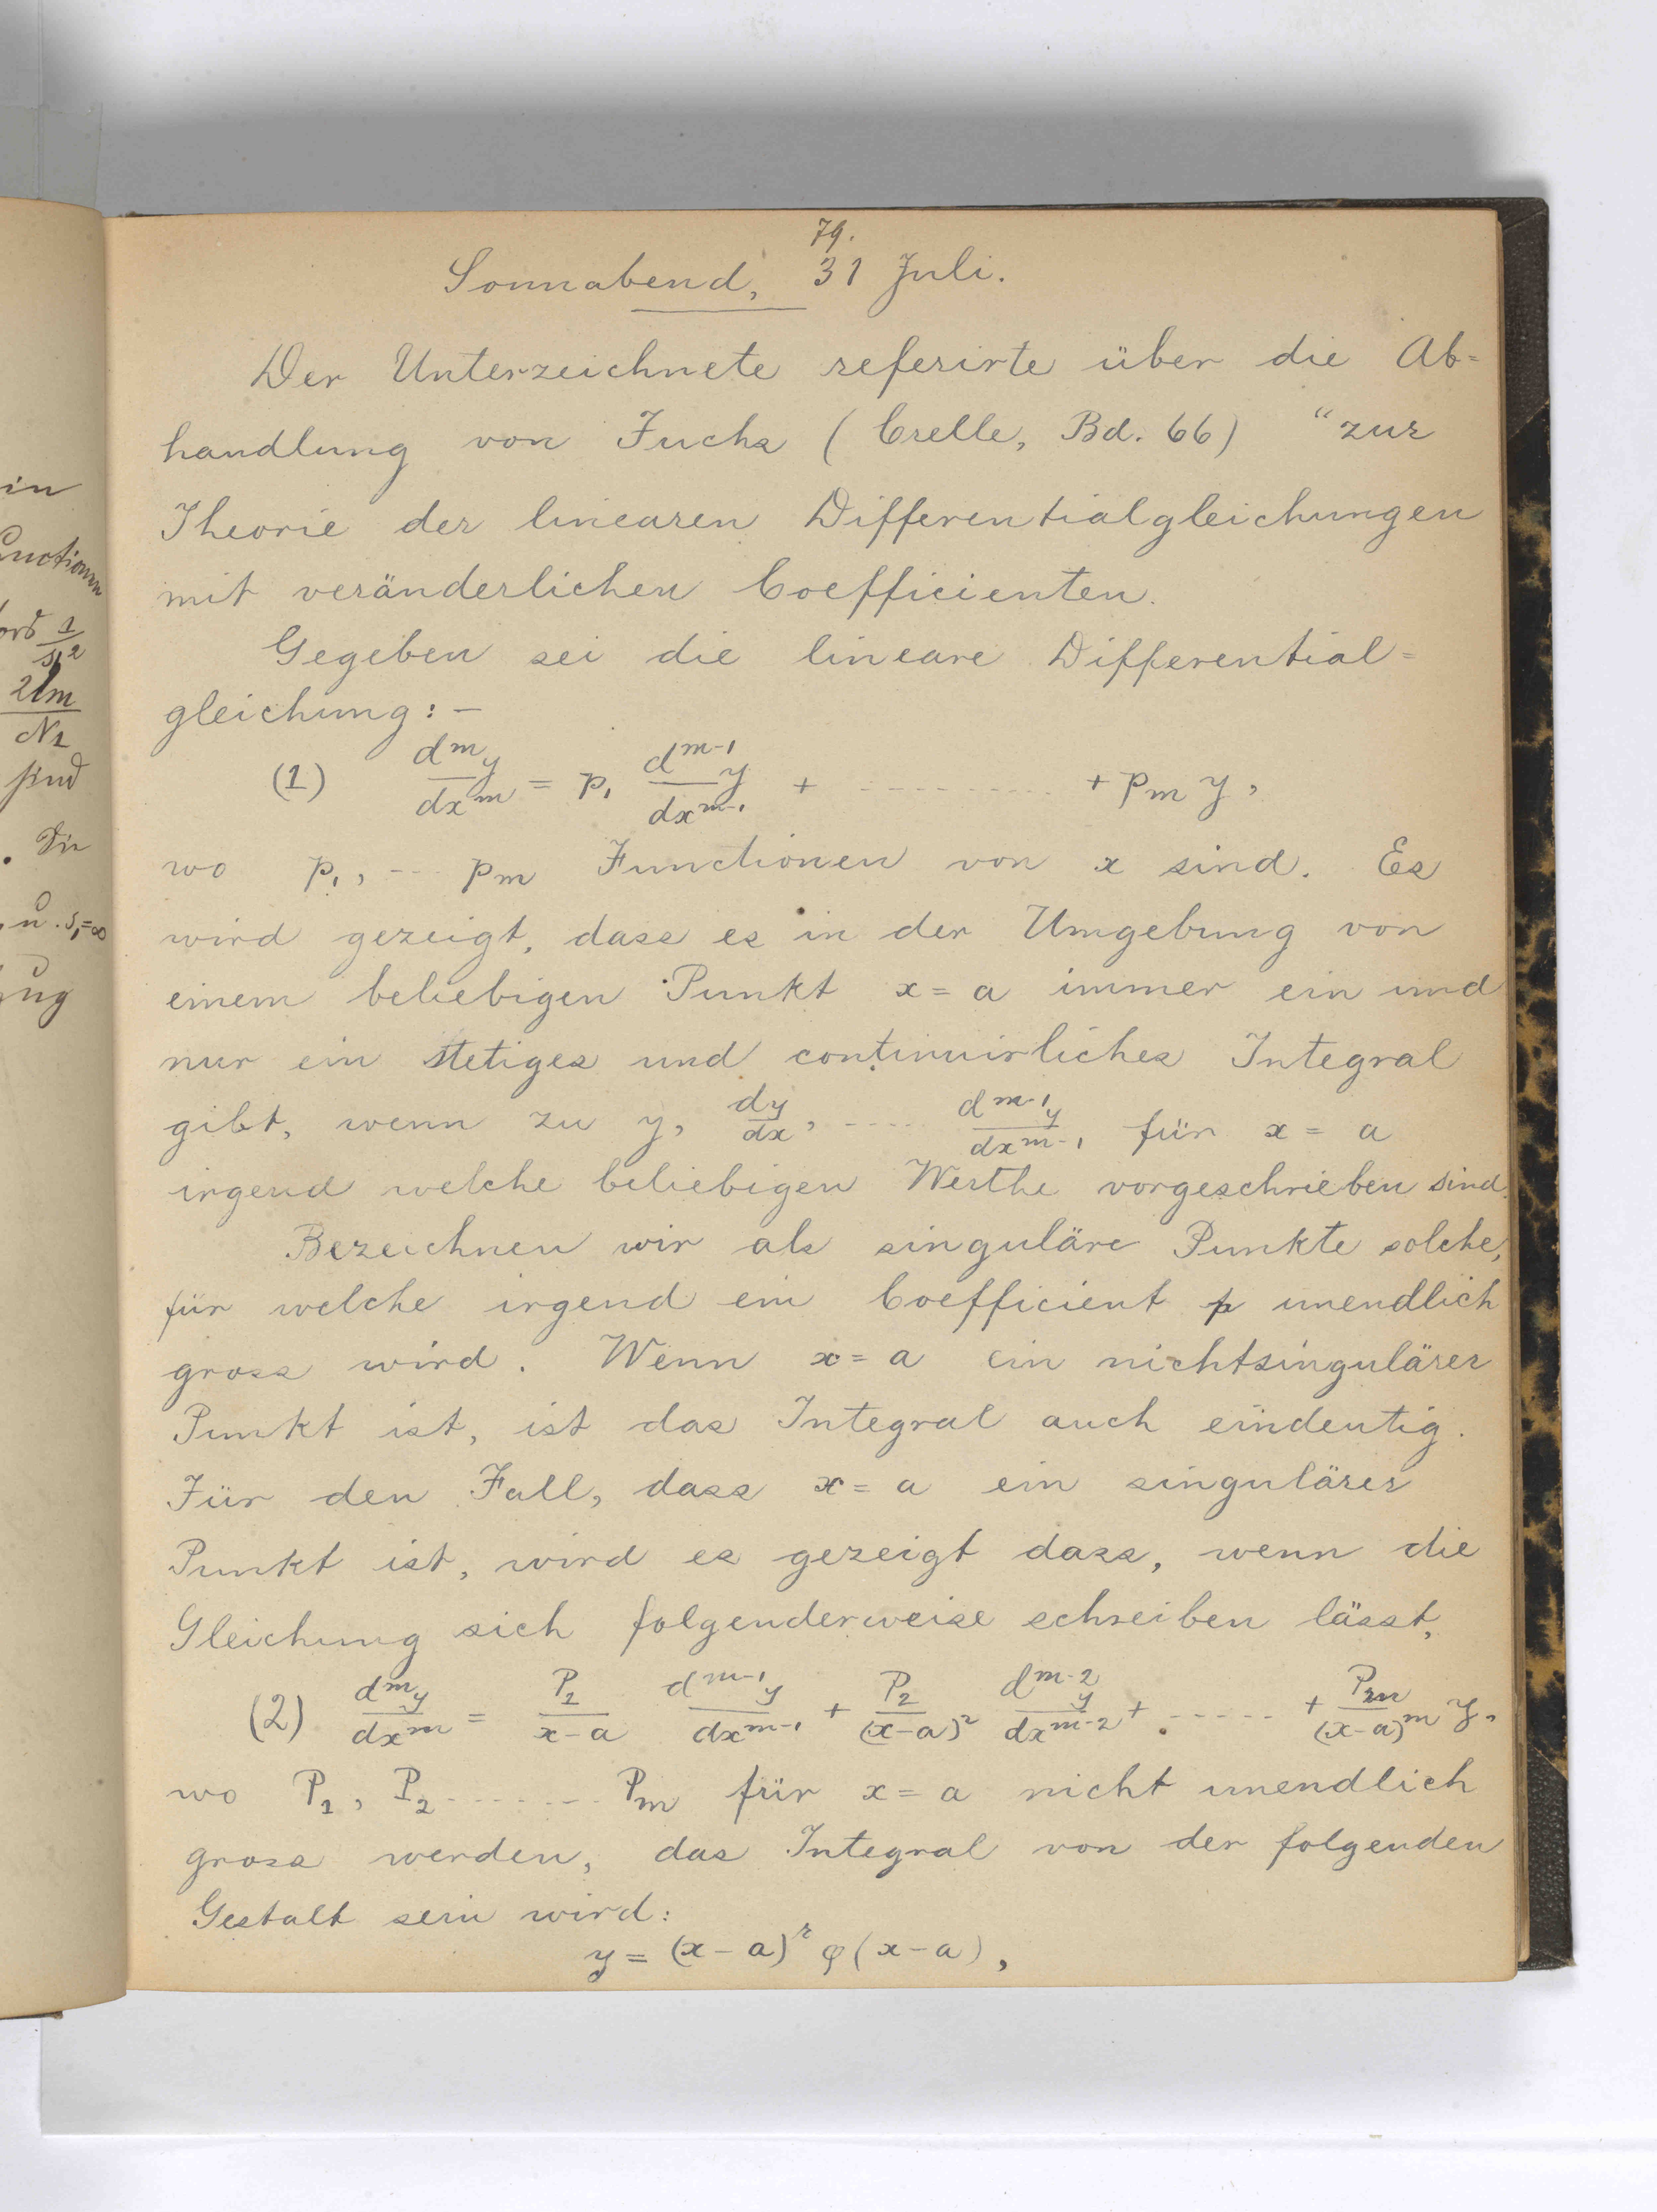 in
79.
Sonnabend, 31 Juli.
Der Unterzeichnete referirte über die Ab=
handlung von Fuchs (Crelle, Bd. 66) "zur
Theorie der linearen Differentialgleichungen
mit veränderlichen Coefficienten.
Gegeben sei die lineare Differential=
gleichung: —
(1) d^m y / dx^m = p_1 d^{m-1} y / dx^{m-1} + - - - - - - - - - + p_m y,
wo p_1, - - - p_m Functionen von x sind. Es
wird gezeigt, dass es in der Umgebung von
einem beliebigen Punkt x = a immer ein und
nur ein stetiges und continuirliches Integral
gibt, wenn zu y, dy/dx, - - - - d^{m-1} y / dx^{m-1}, für x = a
irgend welche beliebigen Werthe vorgeschrieben sind.
Bezeichnen wir als singuläre Punkte solche,
für welche irgend ein Coefficient p unendlich
gross wird. Wenn x = a ein nichtsingulärer
Punkt ist, ist das Integral auch eindeutig.
Für den Fall, dass x = a ein singulärer
Punkt ist, wird es gezeigt dass, wenn die
Gleichung sich folgenderweise schreiben lässt,
(2) d^m y / dx^m = P_1 / x-a d^{m-1} y / dx^{m-1} + P_2 / (x-a)^2 d^{m-2} y / dx^{m-2} + - - - - - + P_m / (x-a)^m y,
wo P_1, P_2 - - - - - - - P_m für x = a nicht unendlich
gross werden, das Integral von der folgenden
Gestalt sein wird:
y = (x - a)^r φ(x - a),
sind